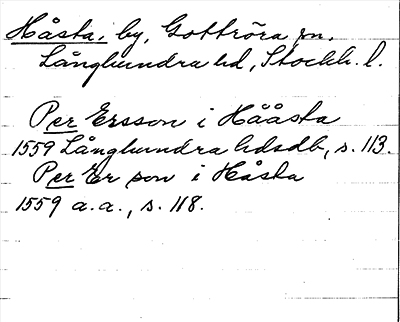 Håsta, by, Gottröra sn,
Långhundra hd, Stockh. l.
Per Ersson i Hååsta
1559 Långhundra hdsdb, s. 113.
Per Er son i Håsta
1559 a.a., s. 118.